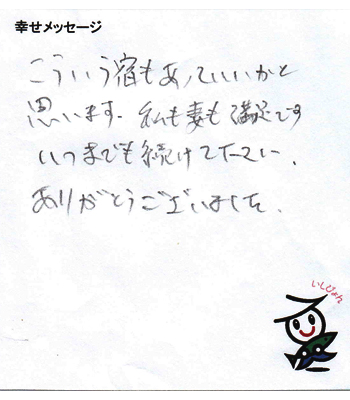 幸せメッセージ
こういう宿もあっていいかと
思います. 私も妻も満足です
いつまでも続けて下さい.
ありがとうございました.
いしぴょん